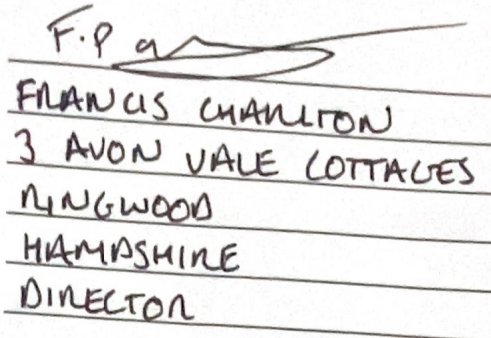 F.P
FRANCIS CHARLTON
3 AVON VALE COTTAGES
RINGWOOD
HAMPSHIRE
DIRECTOR